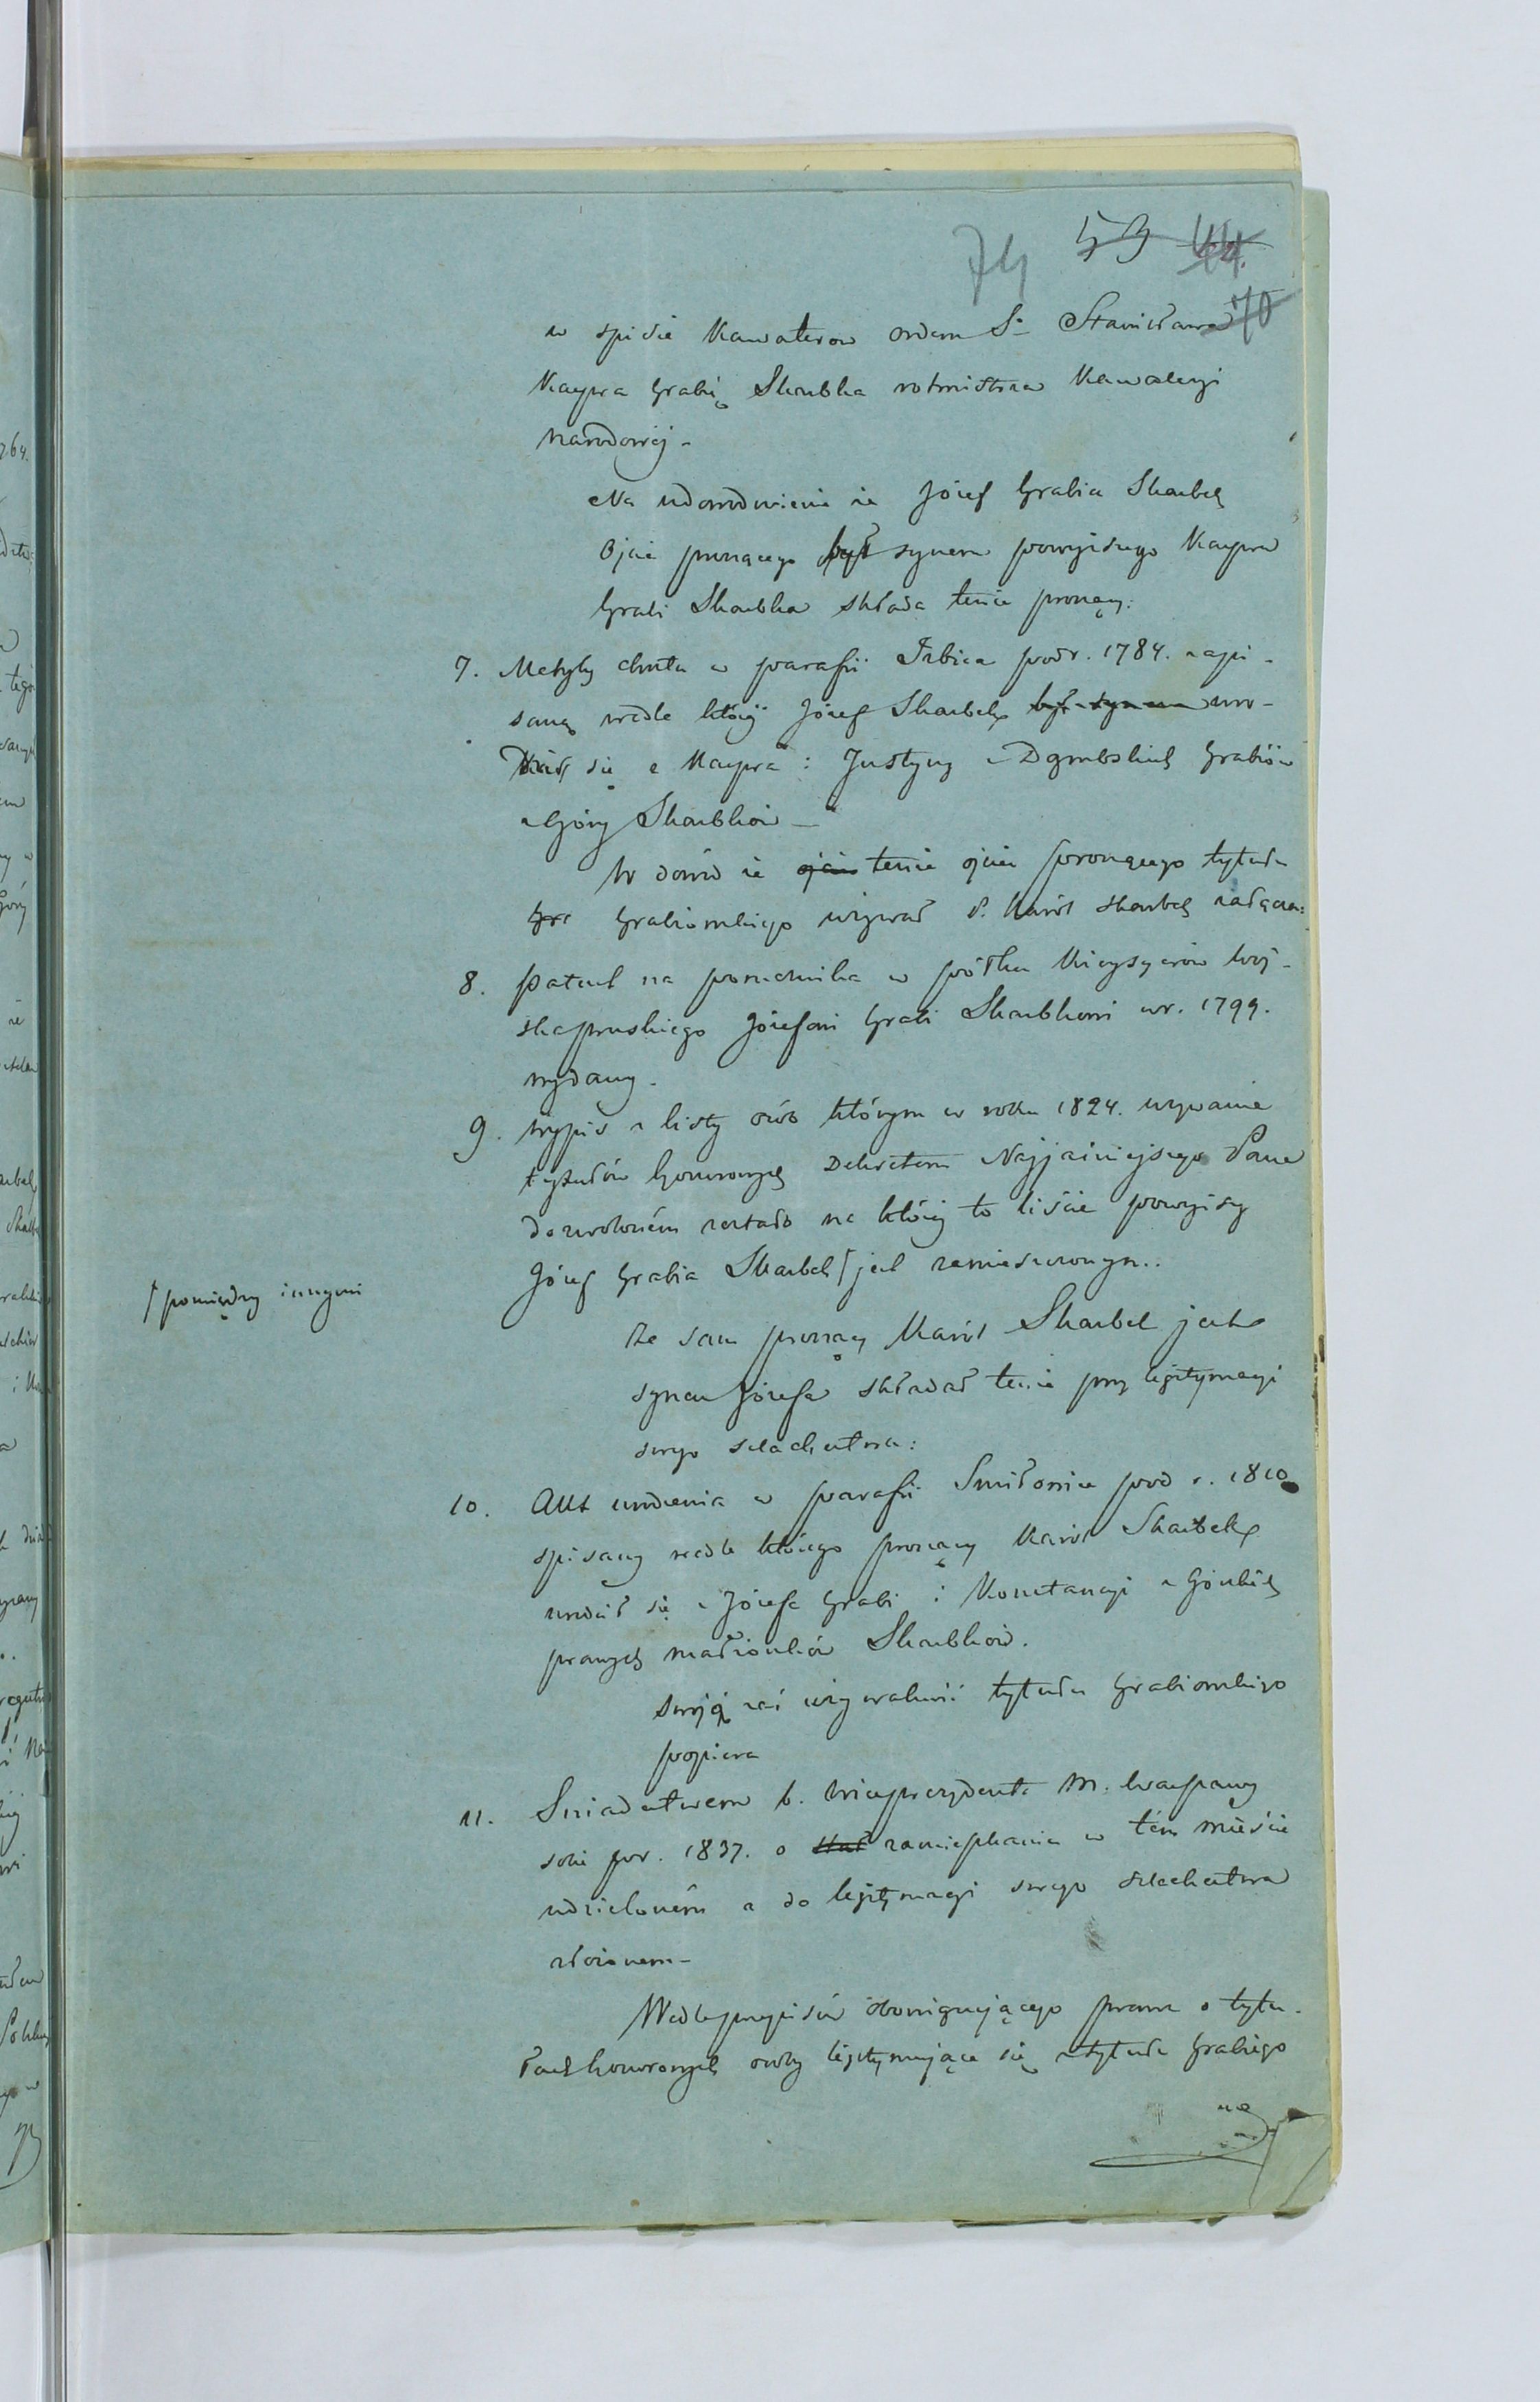 74 53 44.
70
w spisie Kawalerow orderu Sº Stanisława
Kacpra Grabię Skarbka rotmistrza Kawaleryi
narodowéj -
Na udowodnienie że Józef Grabia Skarbek
Ojciec proszącego był synem powyższego Kacpra
Grabi Skarbka składa tenże proszący:
7. Metrykę chrztu w parafii Izbica pod r. 1784. zapi-
saną wedle któréj Józef Skarbek był synem uro-
dził się z Kacpra i Justyny z Dąmbskich Grabiów
z Góry Skarbków -
W dowód że ojciec tenże ojciec proszącego tytułu
Gra Grabiowskiego używał P. Karol Skarbek załącza:
8. patent na porucznika w półku Kirysyerów woj-
ska pruskiego Józefowi Grabi Skarbkowi w r. 1799.
wydany.
9. Wypis z listy osób którym w roku 1824. używanie
tytułów honorowych Dekretem Najjaśniejszego Pana
dozwolonem zostało na któréj to liście powyższy
Józef Grabia Skarbek / jest zamieszczonym..
/ pomiędzy innymi
Że sam proszący Karol Skarbek jest
synem Józefa składał tenże przy legitymacyi
swego szlachectwa:
10. Akt urodzenia w parafii Smiłowice pod r. 1810
spisany wedle którego proszący Karol Skarbek
urodził się z Józefa Grabi i Konstancyi z Górskich
prawych małżonków Skarbków.
Swoją zaś używalność tytułu Grabiowskiego
popiera
11. Swiadectwem b. Wiceprezydenta M. Warszawy
sobie p. r. 1837. o stał zamieszkaniu w tém mieście
udzieloném a do legitymacyi swego szlachectwa
złożonem -
Wedle przepisów obowiązującego prawa o tytu-
łach honorowych osoby legitymujące się z tytułu Grabiego